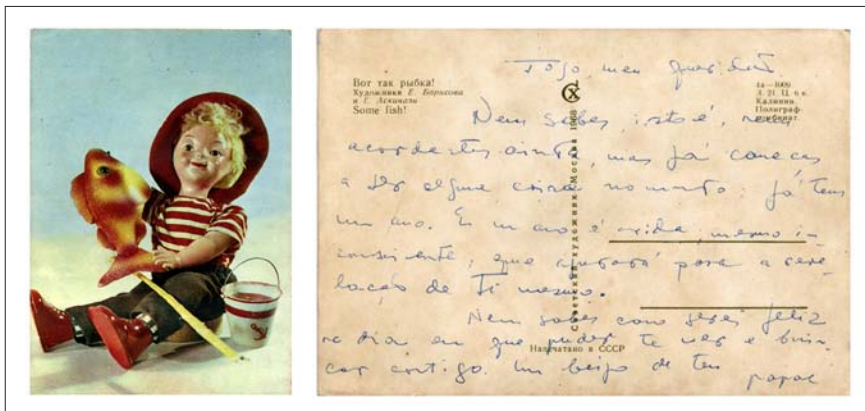 Вот так рыбка!
Художники Е. Борисова
и Е. Аскинази
Some fish!
Ц. 6 к.
Калинин.
Полиграф-
комбинат.
Советский художник Москва 1968
meu querido
Nem sabes, isto é, nem
ainda, mas já começas
a ser alguma coisa no mundo: já tens
um ano. E um ano é vida, mesmo in-
consciente, que ajudará para a reve-
lação de ti mesmo.
Nem sabes como serei feliz
no dia em que puder te ver e brin-
car contigo. Um beijo de teu
papae
Напечатано в СССР